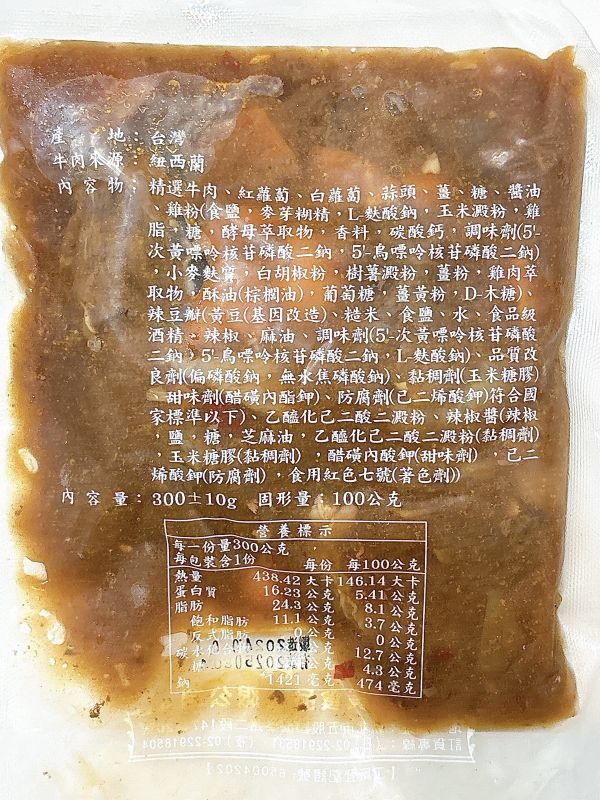 產 地：台灣
牛肉來源：紐西蘭
內容物：精選牛肉、紅蘿蔔、白蘿蔔、蒜頭、薑、糖、醬油
、雞粉(食鹽，麥芽糊精，L-麩酸鈉，玉米澱粉，雞
脂，糖，酵母萃取物，香料，碳酸鈣，調味劑(5'-
次黃嘌呤核苷磷酸二鈉，5'-鳥嘌呤核苷磷酸二鈉)
，小麥麩質，白胡椒粉，樹薯澱粉，薑粉，雞肉萃
取物，酥油(棕櫚油)，葡萄糖，薑黃粉，D-木糖)、
辣豆瓣(黃豆(基因改造)、糙米、食鹽、水、食品級
酒精、辣椒、麻油、調味劑(5'-次黃嘌呤核苷磷酸
二鈉，5'-鳥嘌呤核苷磷酸二鈉，L-麩酸鈉)、品質改
良劑(偏磷酸鈉，無水焦磷酸鈉)、黏稠劑(玉米糖膠)
、甜味劑(醋磺內酯鉀)、防腐劑(己二烯酸鉀)符合國
家標準以下)、乙醯化己二酸二澱粉、辣椒醬(辣椒
，鹽，糖，芝麻油，乙醯化己二酸二澱粉(黏稠劑)
，玉米糖膠(黏稠劑)，醋磺內酸鉀(甜味劑)，己二
烯酸鉀(防腐劑)，食用紅色七號(著色劑))
內容量：300±10g 固形量：100公克
營養標示
每一份量300公克
每包裝含1份 每份 每100公克
熱量 438.42 大卡 146.14 大卡
蛋白質 16.23 公克 5.41 公克
脂肪 24.3 公克 8.1 公克
飽和脂肪 11.1 公克 3.7 公克
反式脂肪 0 公克 0 公克
碳水 公克 12.7 公克
糖 公克 4.3 公克
鈉 1421 毫克 474 毫克
訂貨專線：02-22918504